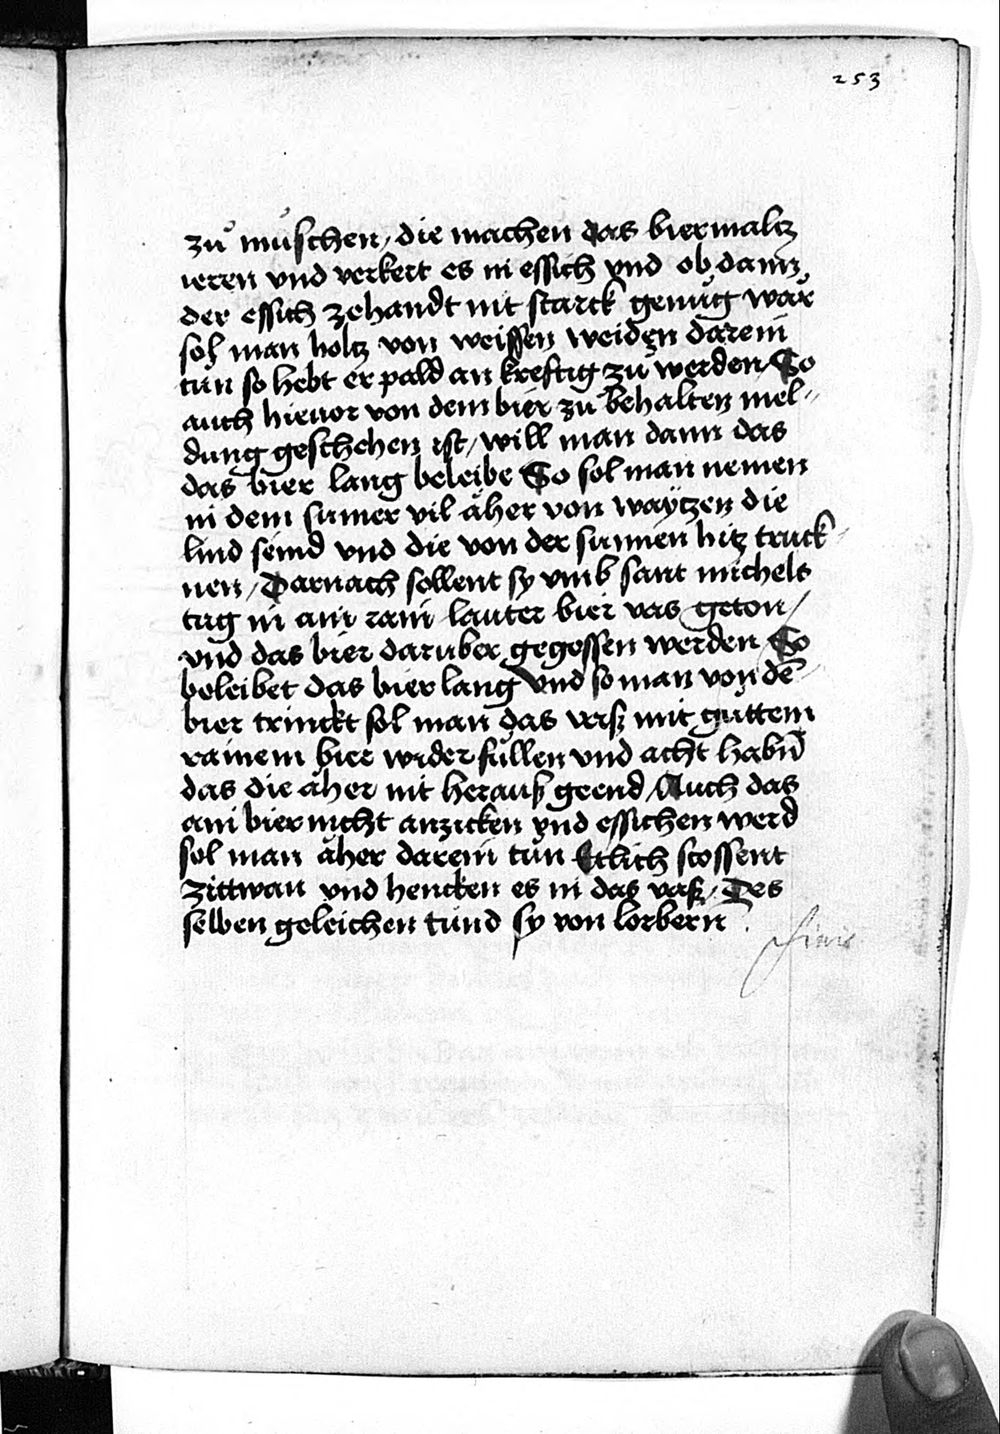 253
zuͦ muͤschen / die machen das biermaltz
ieren vnd verkert es in essich vnd ob dann
der essich zehandt nit starck genuͦg waͤr
sol man holtz von weissen weiden darein
tuͦn so hebt er pald an kreftig zuͦ werden / So
auch hieuor von dem bier zuͦ behalten mel=
dung geschehen ist / will man dann das
das bier lang beleibe So sol man nemen
in dem sumer vil aͤher von waytzen die
lind seind vnd die von der sunnen hitz truck=
nen / Darnach sollent sy vmb sant michels
tag in ain rain lauter bier vas geton /
vnd das bier daruber gegossen werden So
beleibet das bier lang vnd so man von dē
bier trinckt sol man das vasz mit guttem
rainem bier wider fuͤllen vnd acht habn̄
das die aͤher nit herauß geend / Auch das
ain bier nicht anzicken vnd essichen werd
sol man aͤher darein tuͦn Ettlich stossent
zittwan vnd hencken es in das vaß / Des
selben geleichen tuͦnd sy von lorbern .
finis